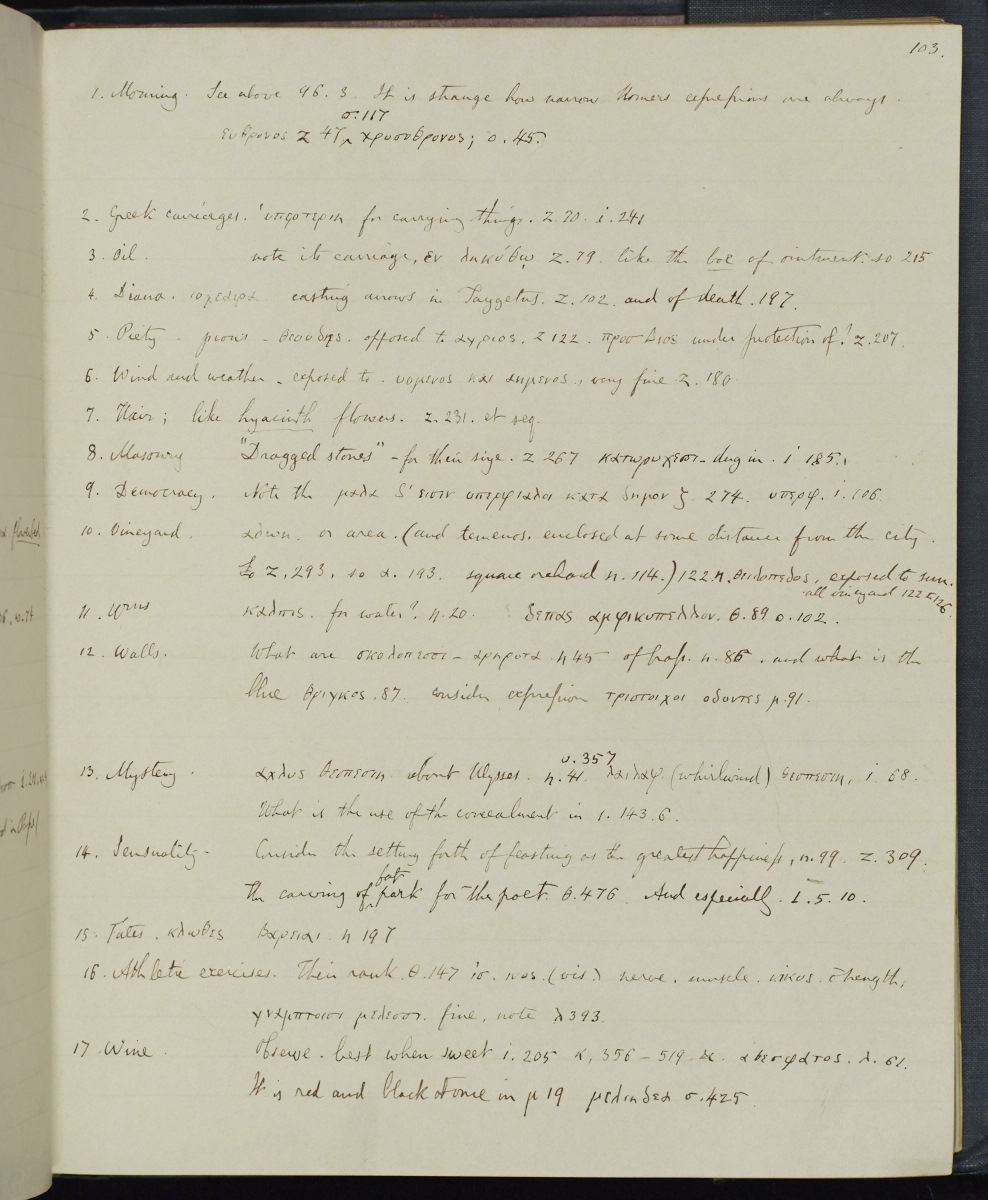 103.
1. Morning. See above 96. 3. It is strange how narrow Homers expressions are always.
σ. 117
ευθρονος ζ 47, χρυσοθρονος; ο. 45.
2. Greek carriages. 'υπερτεριη for carrying things. ζ. 70. ι. 241
3. Oil. note its carriage, εν ληκύθῳ ζ. 79. like the box of ointment. so 215
4. Diana. ιοχεαιρα casting arrows in Taygetus. ζ. 102. and of death. 197.
5. Piety. pious - θεουδης. opposed to αγριος. ζ 122. προς Διος under protection of? ζ. 207.
6. Wind and weather - exposed to. υομενος και αημενος, very fine ζ. 180
7. Hair; like hyacinth flowers. ζ. 231. et seq.
8. Masonry "Dragged stones" - for their size. ζ 267 κατωρυχεσι - dug in. ι 185.
9. Democracy. Note the μαλα δ' εισιν υπερφιαλοι κατα δημον ζ. 274. υπερφ. ι. 106.
10. Vineyard. αλωη. or area. (and temenos. enclosed at some distance from the city.
So ζ, 293, so α. 193. square orchard η. 114.) 122. η. θειλοπεδος, exposed to sun.
all vineyard 122 126.
11. Urns καλπις. for water? η. 20. δεπας αμφικυπελλον. θ. 89 ο. 102.
12. Walls. What are σκολοπεσσι - αρηροτα η 45 of brass. η. 86. and what is the
blue θριγκος. 87. consider expression τριστοιχοι οδοντες μ. 91.
υ. 357
13. Mystery. αχλυς θεσπεσιη about Ulysses. η. 41. λαιλαψ (whirlwind) θεσπεσιη, ι. 68.
What is the use of the concealment in ι. 143. 6.
14. Sensuality - Consider the setting forth of feasting as the greatest happiness, η. 99. ζ. 309.
fat
the carving of pork for the poet. θ. 476. And especially. ι. 5. 10.
15. Fates. κλωθες βαρειαι. η 197
16. Athletic exercises. Their rank. θ. 147 ις. ινος. (vis) nerve. muscle. κικυς. strength,
γναμπτοισι μελεσσι. fine, note λ 393.
17. Wine. Observe. best when sweet ι. 205 κ, 356 - 519 αθεσφατος. λ. 61.
It is red and black at once in μ 19 μελιηδεα σ. 425.